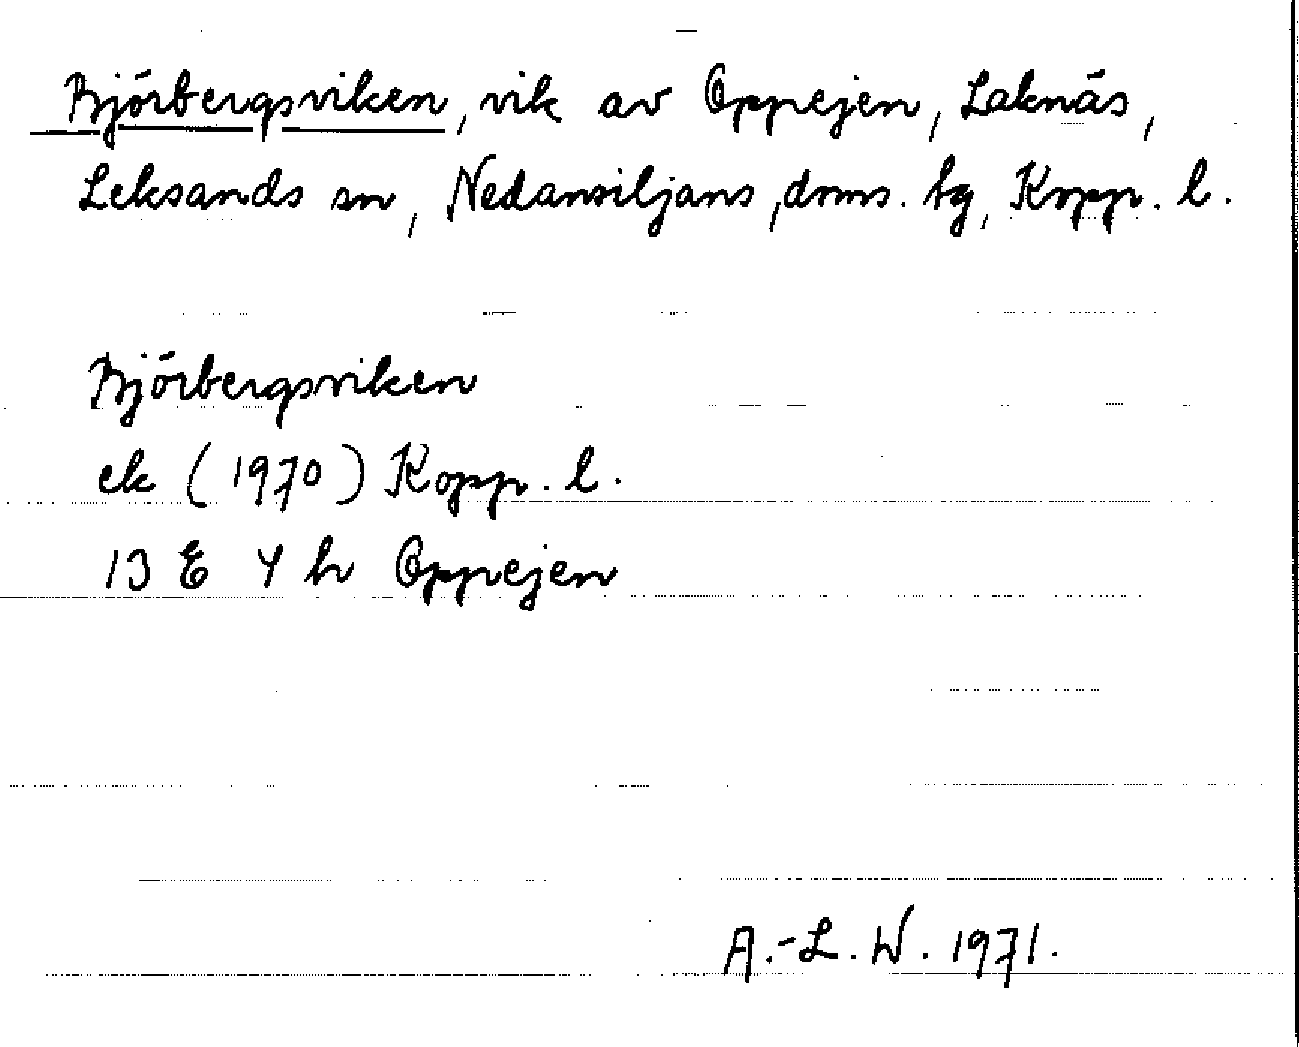 Björbergsviken, vik av Oppejen, Laknäs,
Leksands sn, Nedansiljans, doms. tg, Kopp. l.
Björbergsviken
ek (1970) Kopp. l.
13 E 4 h Oppejen
A.-L. W. 1971.